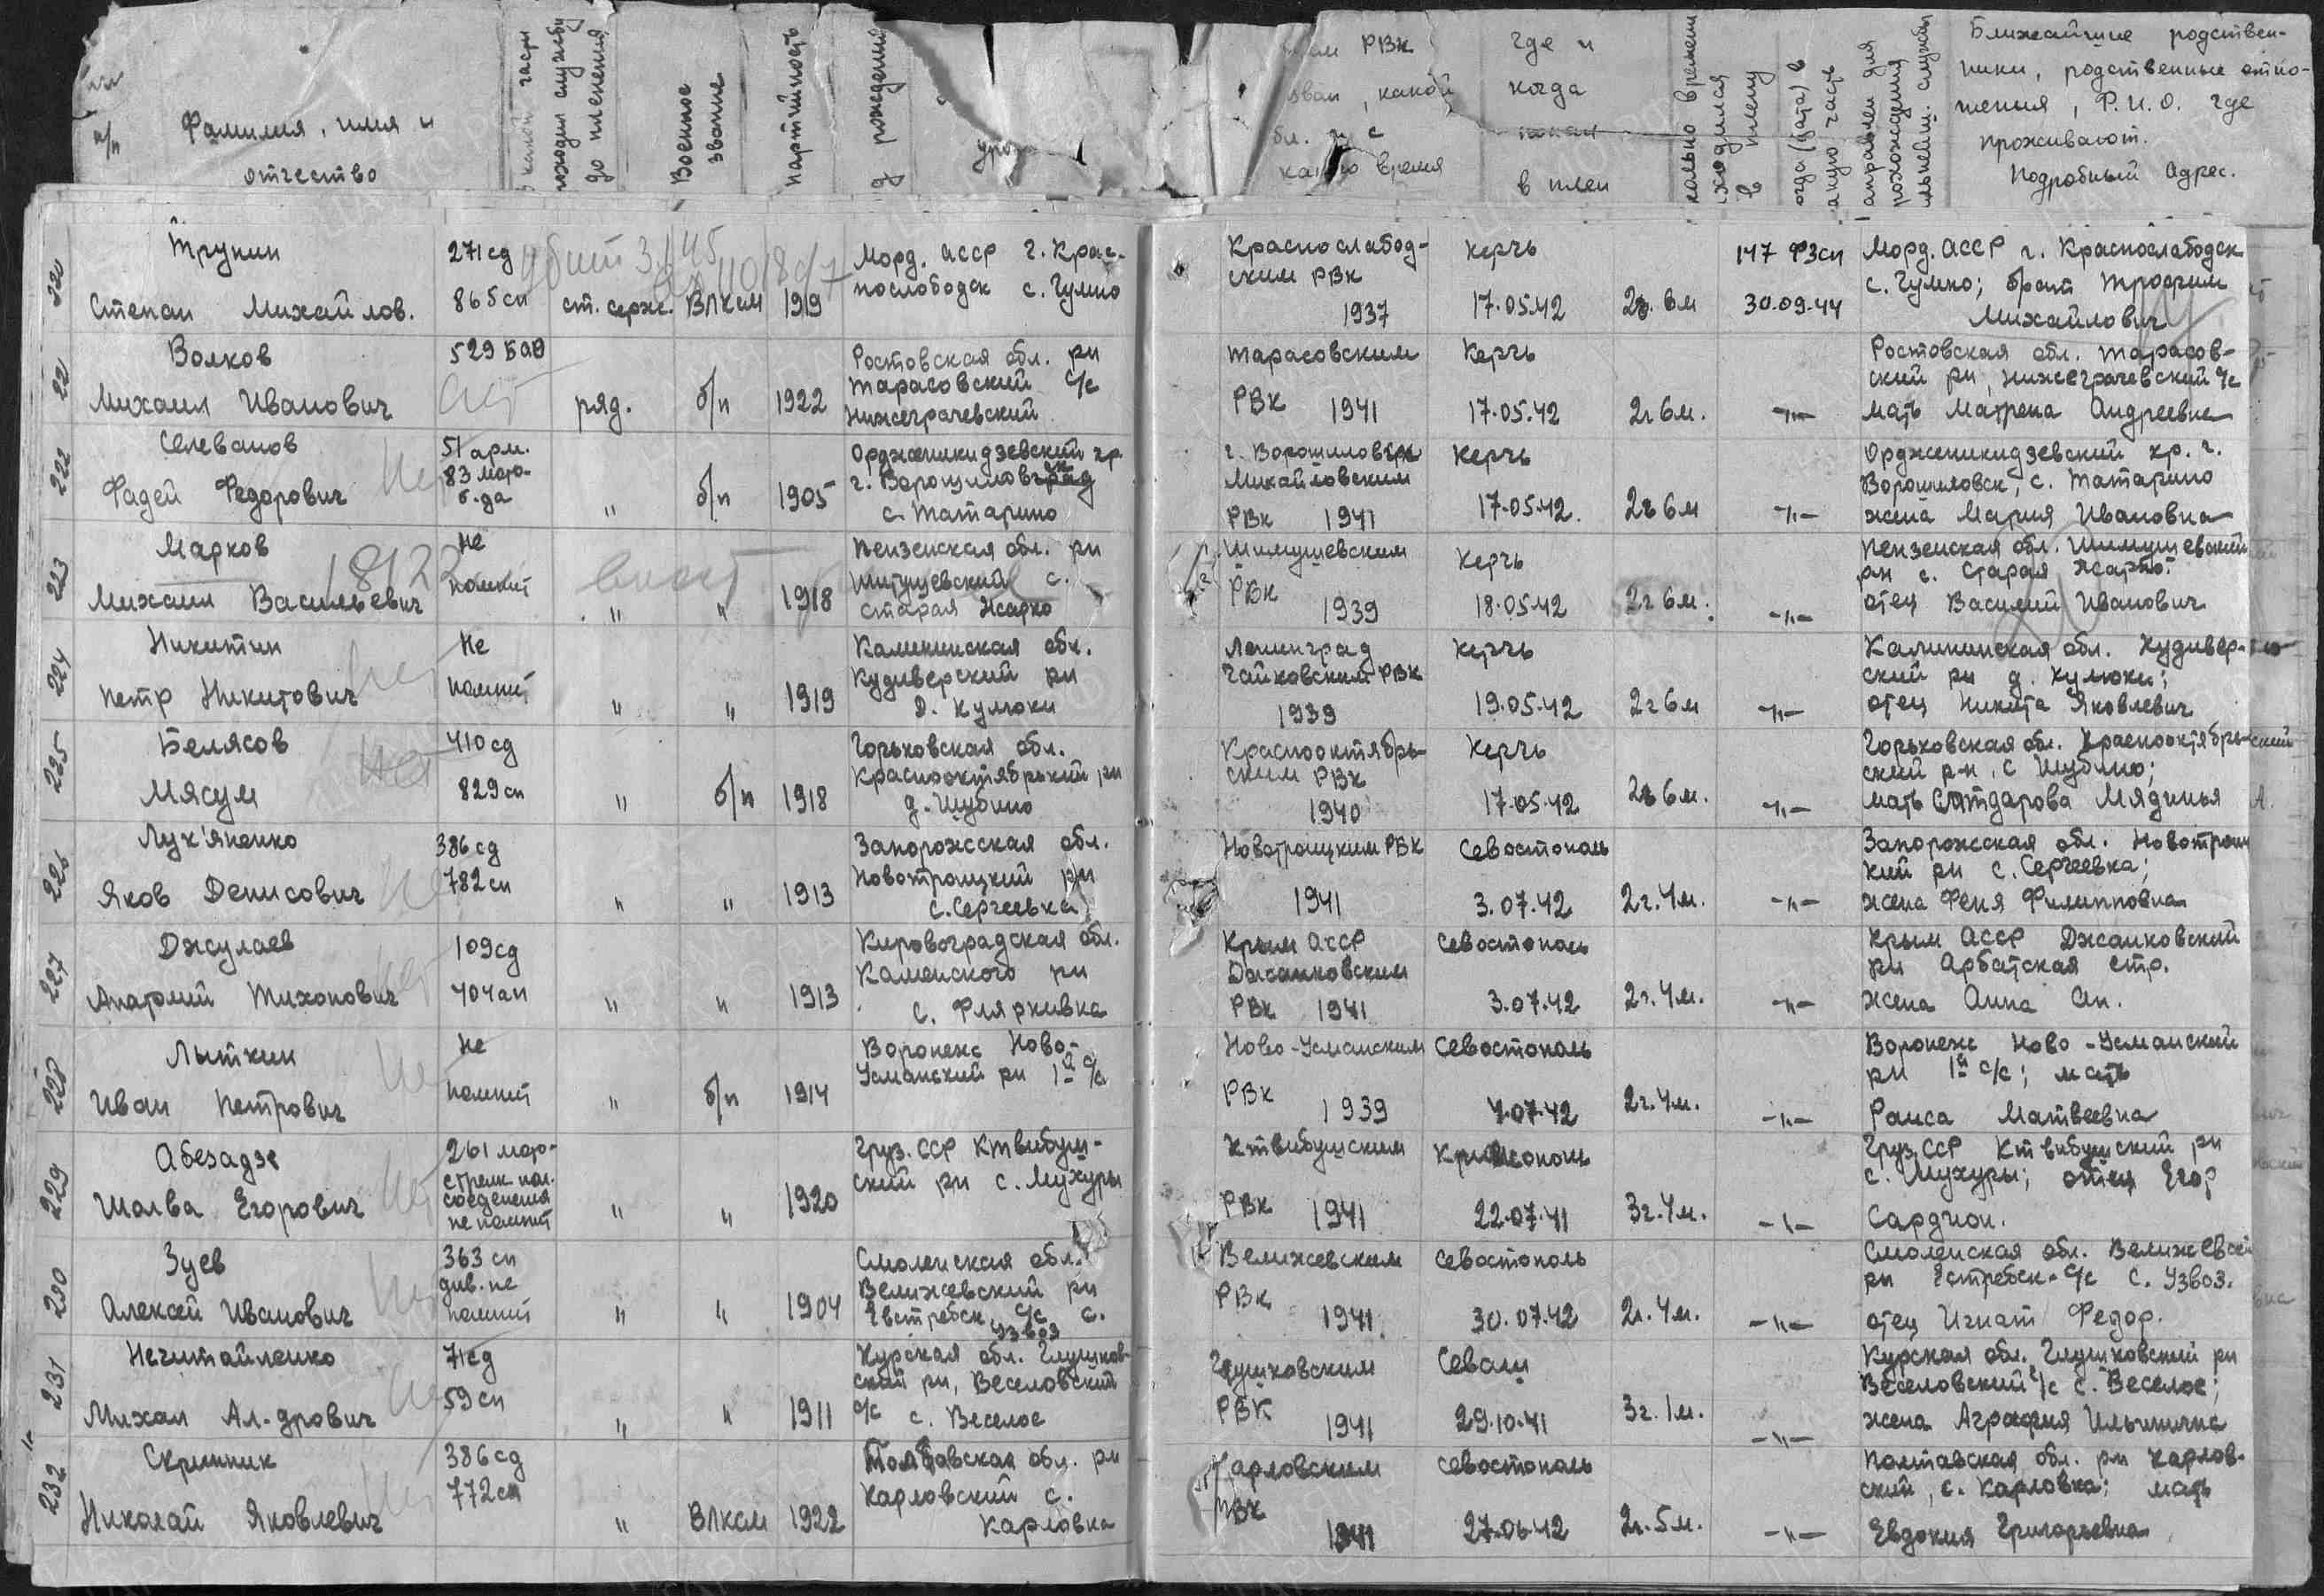 п/п
Фамилия, имя и
отчество
в какой части
проходил службу
до пленения
Военное
звание
партийность
рождения
РВК
какой
с
какого время
где и
когда
попал
в плен
сколько времени
находился
в плену
Ближайшие родствен-
ники, родственные отно-
шения, Ф.И.О. где
проживают.
Подробный адрес.
Трунин
Степан Михайлов.
271 сд
865 сп
убит 3.1.45
ст. серж.
ВЛКСМ
1919
Морд. АССР г. Крас-
нослободск с. Гумно
Краснослабод-
ским РВК
1937
Керчь
17.05.42
2г. 6м
147 ФЗСП
30.09.44
Морд. АССР г. Краснослабодск
с. Гумно; брат Трофим
Михайлович
221
Волков
Михаил Иванович
529 БАО
ряд.
б/п
1922
Ростовская обл. рн
Тарасовский с/с
Нижеграчевский
Тарасовским
РВК 1941
Керчь
17.05.42
2г 6м.
-"-
Ростовская обл. Тарасов-
ский рн, Нижеграчевский с/с
мать Матрена Андреевна
222
Селеванов
Фадей Федорович
51 арм.
83 мор-
б-да
"
б/п
1905
Орджоникидзевский кр
г. Ворошиловск
с. Татарино
г. Ворошиловск
Михайловским
РВК 1941
Керчь
17.05.42.
2г 6м
-"-
Орджоникидзевский кр. г.
Ворошиловск, с. Татарино
жена Мария Ивановна
223
Марков
Михаил Васильевич
Не
помнит
"
"
1918
Пензенская обл. рн
с.
Старая Жсарко
РВК
1939
Керчь
18.05.42
2г 6м.
-"-
Пензенская обл.
рн с. Старая
отец Василий Иванович
224
Никитин
Петр Никитович
Не
помнит
"
"
1919
Калининская обл.
Кудиверский рн
Д. Кулюки
Ленинград
Чайковским РВК
1939
Керчь
19.05.42
2г 6м
-"-
Калининская обл. Кудивер-
ский рн д. Кулюки;
отец Никита Яковлевич
225
Белясов
Мясум
410 сд
829 сп
"
б/п
1918
Горьковская обл.
Краснооктябрький рн
д. Шубино
Краснооктябрь-
ским РВК
1940
Керчь
17.05.42
2г 6м.
-"-
Горьковская обл. Краснооктябрь-
ский р-н, с Шубино;
мать Сатдарова Мядинья
226
Лук'яненко
Яков Денисович
386 сд
782 сп
"
"
1913
Запорожсская обл.
Новотроицкий рн
с. Сергеевка
Новотроицким РВК
1941
Севостополь
3.07.42
2г. 4м.
-"-
Запорожская обл. Новотроиц
кий рн с. Сергеевка;
жена Феня Филипповна
227
Джулаев
Анатолий Тихонович
109 сд
404 ап
"
"
1913
Кировоградская обл.
Каменского рн
с. Фляркивка
Крым АССР
Джанковским
РВК 1941
Севостополь
3.07.42
2г. 4м.
-"-
Крым АССР Джанковский
рн Арбатская стр.
жена Анна Ан.
228
Лыткин
Иван Петрович
Не
помнит
"
б/п
1914
Воронеж Ново-
Усманский рн 1й с/с
Ново-Усманским
РВК
1939
Севостополь
4.07.42
2г. 4м.
-"-
Воронеж Ново-Усманский
рн 1й с/с; мать
Раиса Матвеевна
229
Абезадзе
Шалва Егорович
261 мор-
стрелк пол.
соеденения
не помнит
"
"
1920
Груз. ССР Ктвибуш-
ский рн с. Мухуры
Ктвибушским
РВК 1941
22.07.41
3г. 4м.
-"-
Груз. ССР Ктвибушский рн
с. Мухуры; отец Егор
Сардион.
230
Зуев
Алексей Иванович
363 сп
див. не
помнит
"
"
1904
Смоленская обл.
Велижевский рн
Евстребск с/с с.
Узвоз
Велижевским
РВК
1941
Севостополь
30.07.42
2г. 4м.
-"-
Смоленская обл. Велижевский
рн Естребск. с/с с. Узвоз.
отец Игнат Федор.
231
Нечитайленко
Михаил Ал-дрович
71 сд
59 сп
"
"
1911
Курская обл. Глушков-
ский рн, Веселовский
с/с с. Веселое
Глушковским
РВК
1941
Севаш
29.10.41
3г. 1м.
-"-
Курская обл. Глушковский рн
Веселовский с/с с. Веселое;
жена Аграфия Ильинична
232
Скрипник
Николай Яковлевич
386 сд
772 сп
"
ВЛКСМ
1922
Полтавская обл. рн
Карловский с.
Карловка
Карловским
РВК
1941
Севостополь
27.06.42
2г. 5м.
-"-
Полтавская обл. рн Карлов-
ский, с. Карловка; мать
Евдокия Григорьевна